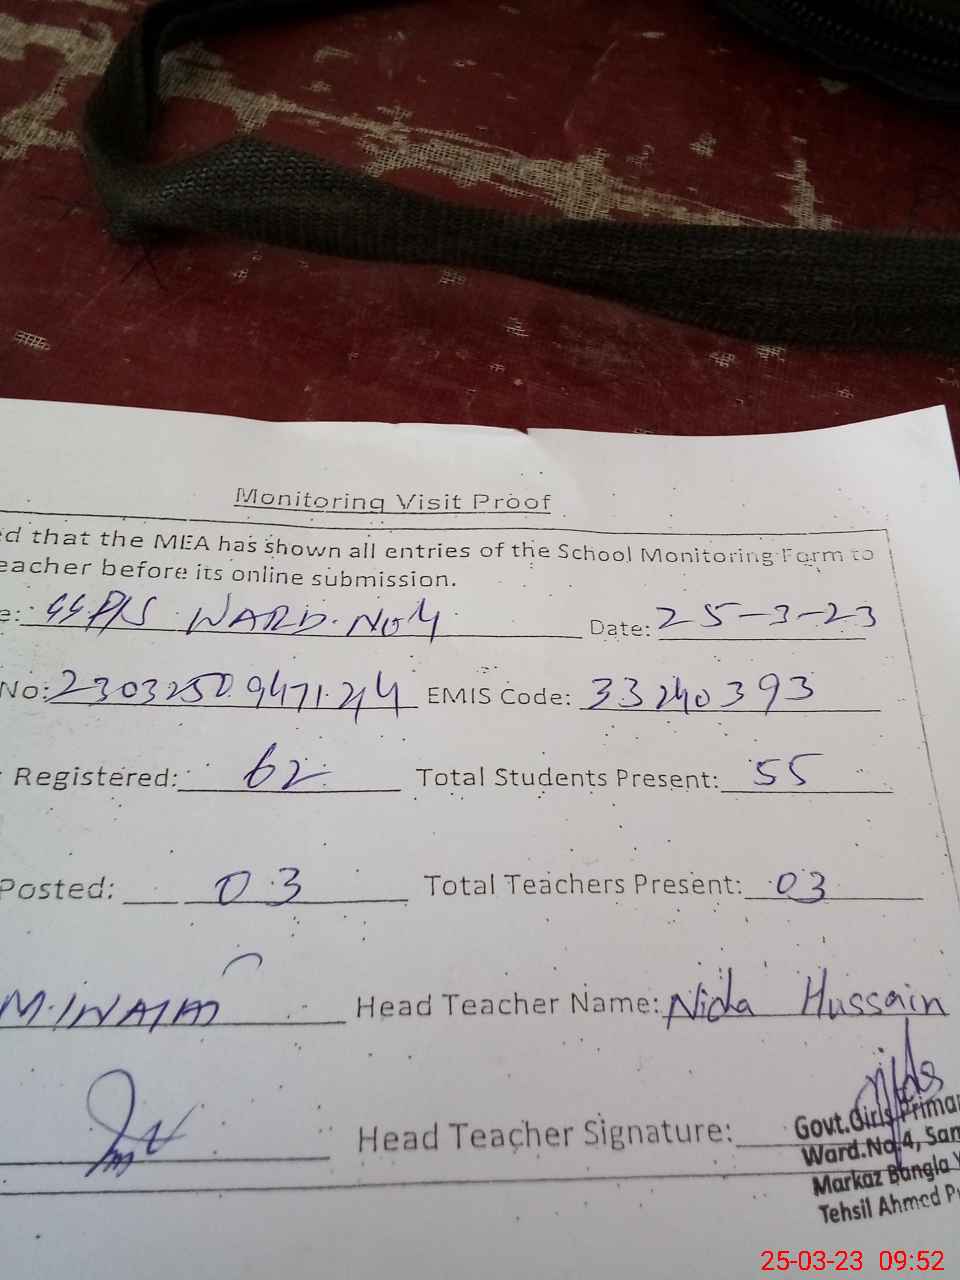 Monitoring Visit Proof
ed that the MEA has shown all entries of the School Monitoring Form to
eacher before its online submission.
e: GGP/S WARD.No4 Date: 25-3-23
No: 2303250947124 EMIS Code: 33240393
Registered: 62 Total Students Present: 55
Posted: 03 Total Teachers Present: 03
Head Teacher Name: Nida Hussain
Head Teacher Signature:
Govt.Girls Primar
Ward.No.4, San
Markaz Bangla Y
Tehsil Ahmed P
25-03-23 09:52